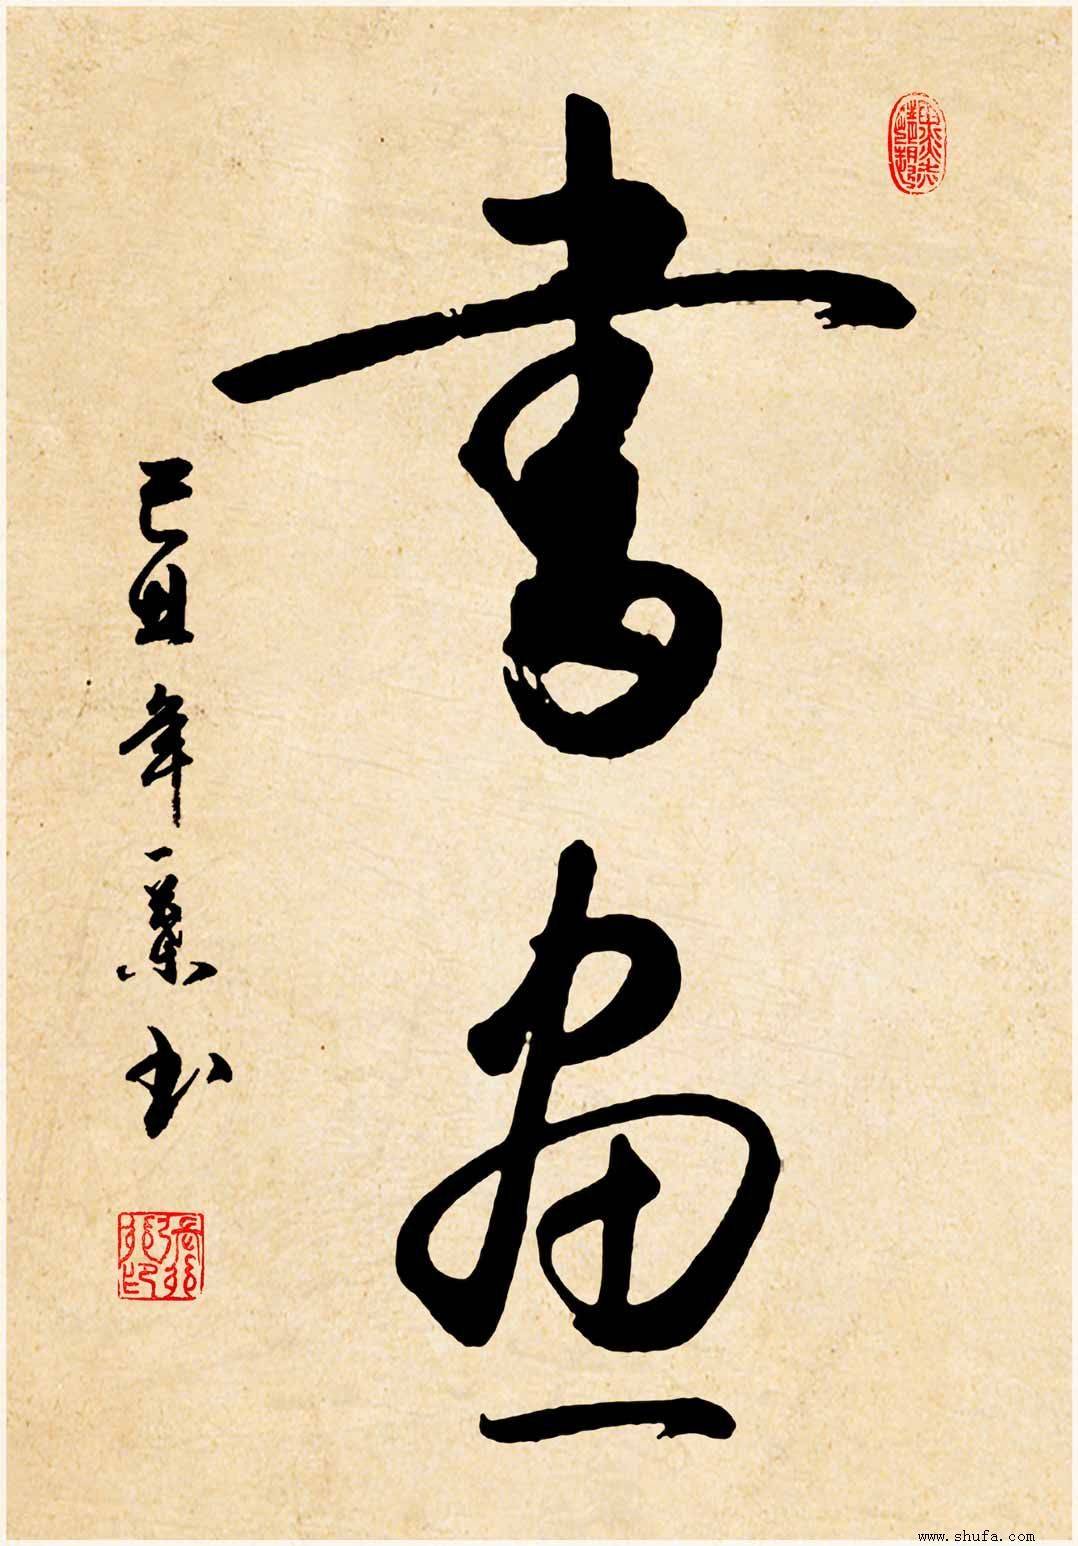 書畫
己丑年一葉书
www.shufa.com